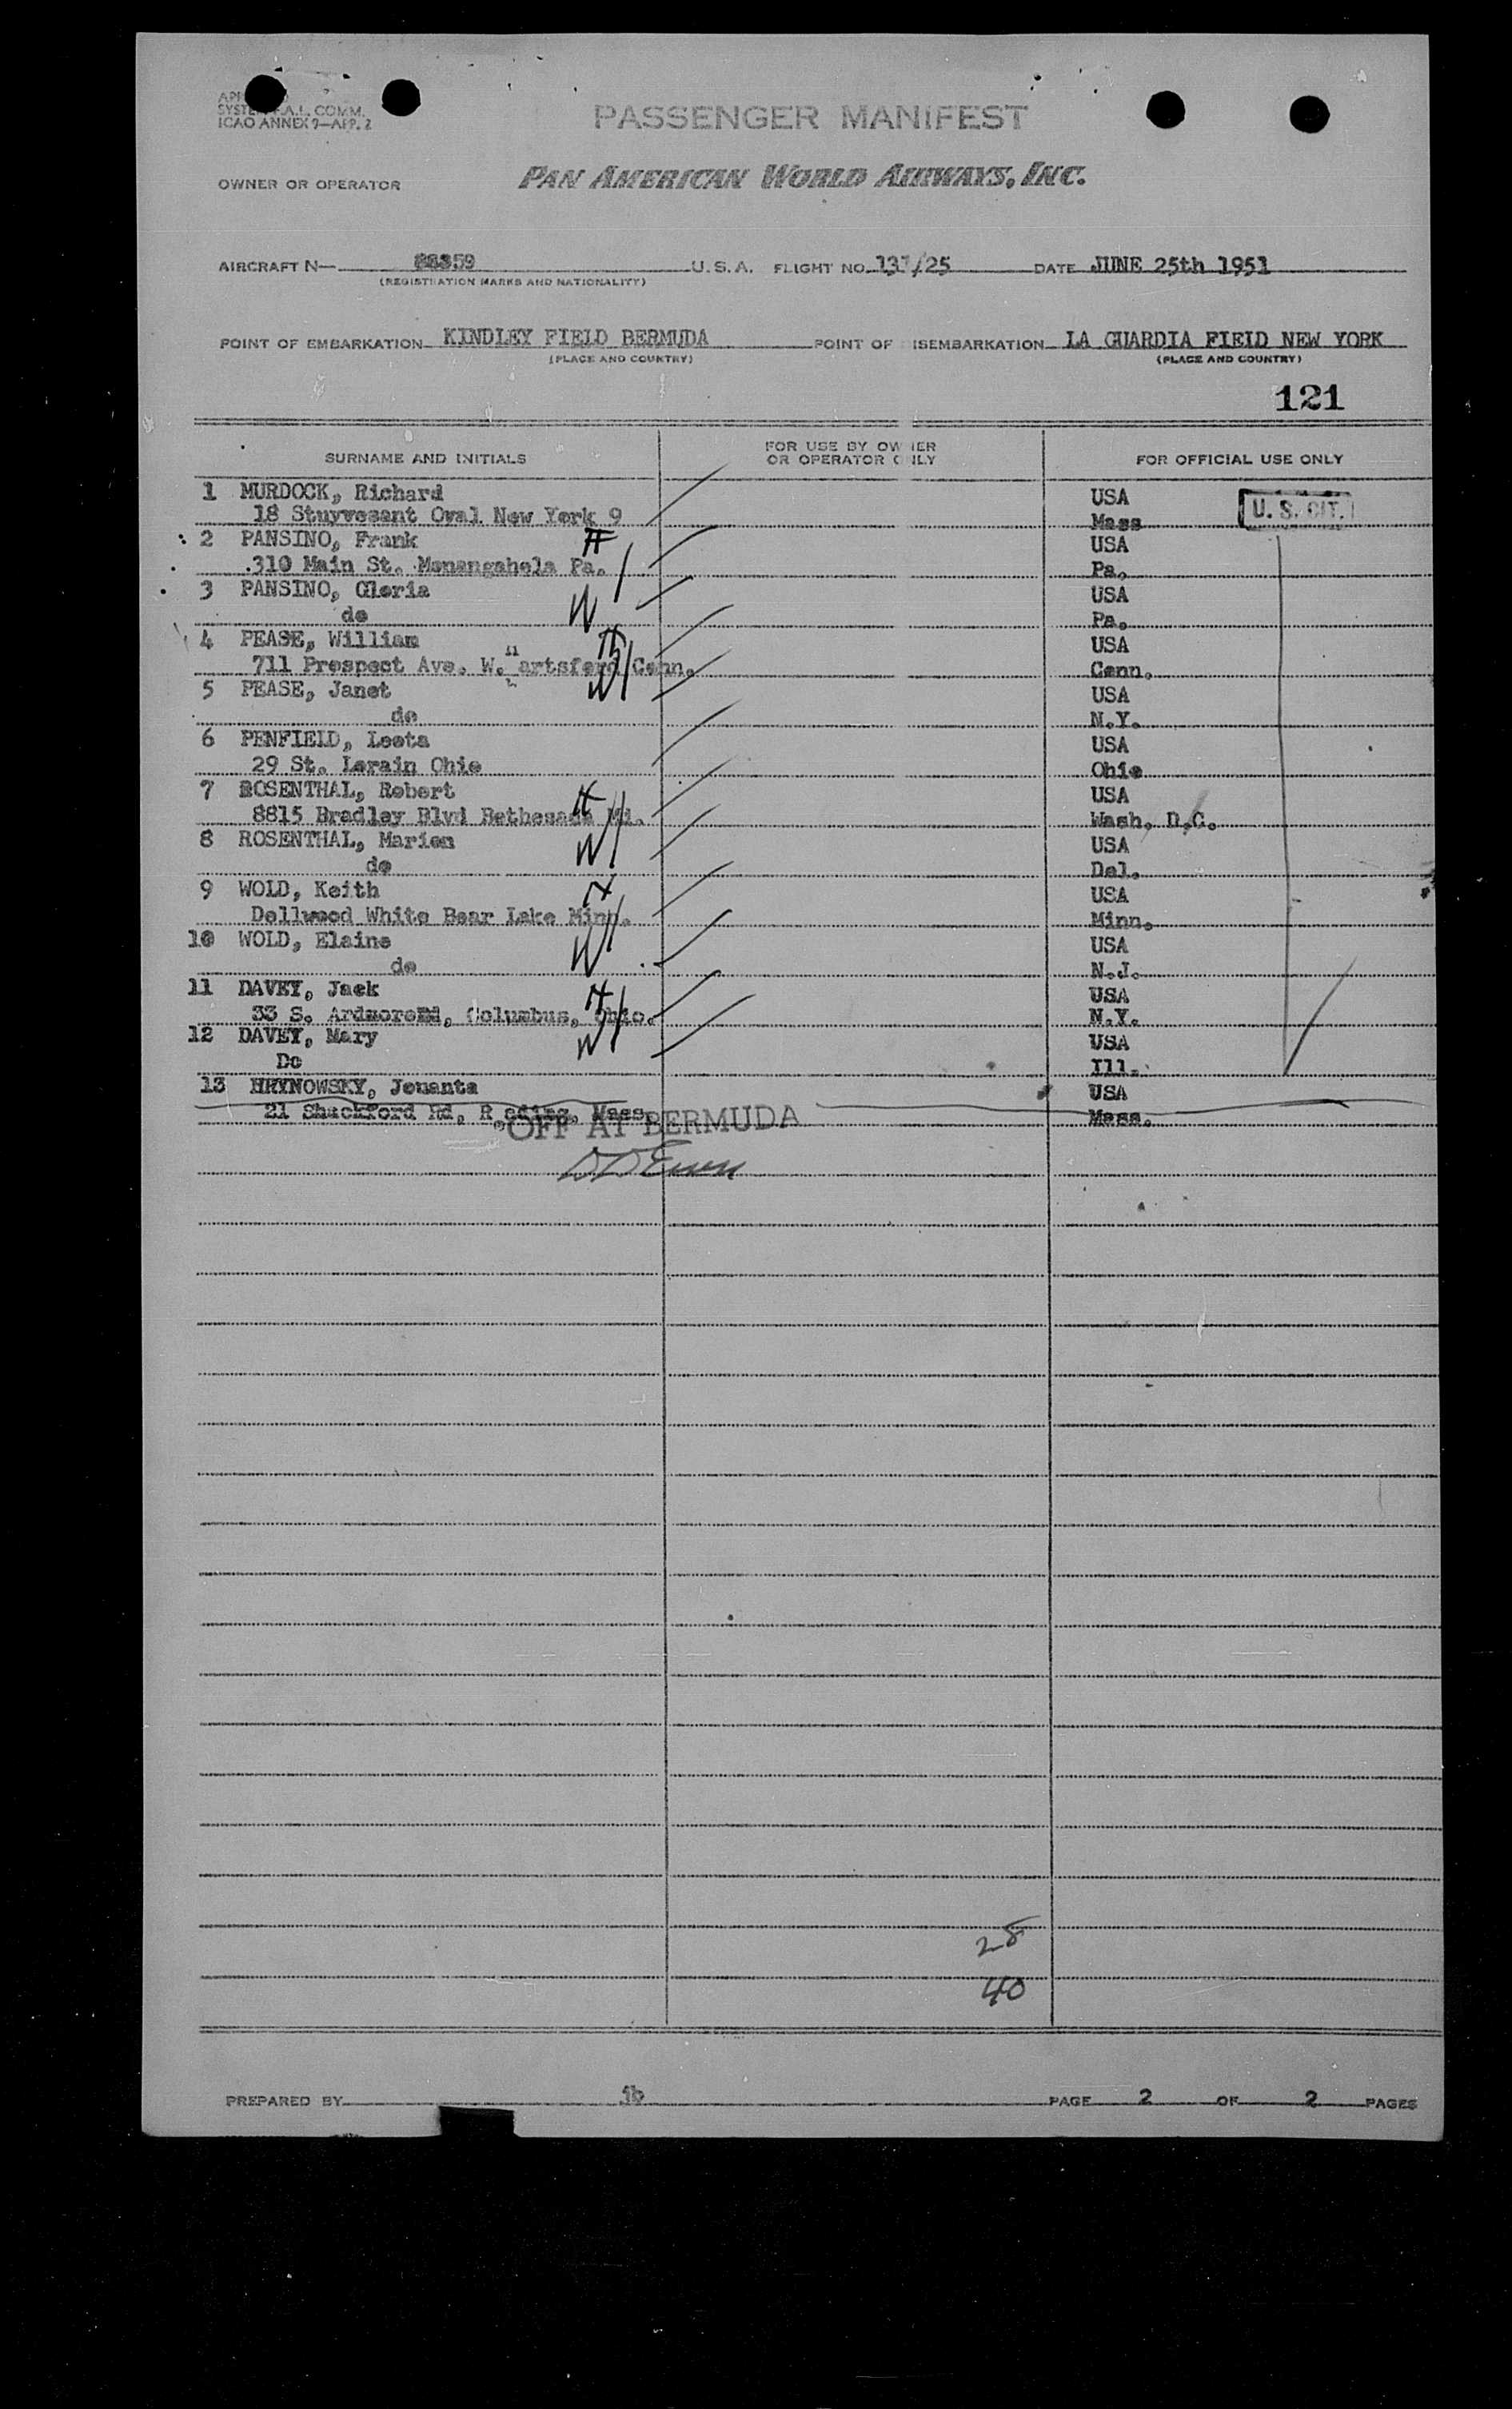 SYSTE A.L. COMM.
ICAO ANNEX 9—APP. 2
PASSENGER MANIFEST
OWNER OR OPERATOR
PAN AMERICAN WORLD AIRWAYS, INC.
AIRCRAFT N— 88859 U. S. A. FLIGHT NO. /25 DATE JUNE 25th 1951
(REGISTRATION MARKS AND NATIONALITY)
POINT OF EMBARKATION KINDLEY FIELD BERMUDA POINT OF ISEMBARKATION LA GUARDIA FIELD NEW YORK
(PLACE AND COUNTRY) (PLACE AND COUNTRY)
121
SURNAME AND INITIALS FOR USE BY OWNER OR OPERATOR ONLY FOR OFFICIAL USE ONLY
1 MURDOCK, Richard USA U. S. CIT.
18 Stuyvesant Oval New York 9 Mass
2 PANSINO, Frank H USA
310 Main St. Monangahela Pa. Pa.
3 PANSINO, Gloria USA
do W Pa.
4 PEASE, William H USA
711 Prospect Ave. W. Hartsford Conn. Conn.
5 PEASE, Janet W USA
do N.Y.
6 PENFIELD, Leeta USA
29 St. Lorain Ohio Ohio
7 ROSENTHAL, Robert H USA
8815 Bradley Blvd Bethesada Mi. Wash. D.C.
8 ROSENTHAL, Marion W USA
do Del.
9 WOLD, Keith H USA
Dellwood White Bear Lake Minn. Minn.
10 WOLD, Elaine W USA
do N.J.
11 DAVEY, Jack H USA
33 S. Ardmore Rd, Columbus, Ohio. N.Y.
12 DAVEY, Mary W USA
Do Ill.
13 HRYNOWSKY, Jouanta USA
21 Shackford Rd, R eding, Mass. Mass.
OFF AT BERMUDA
28
40
PREPARED BY jb PAGE 2 OF 2 PAGES